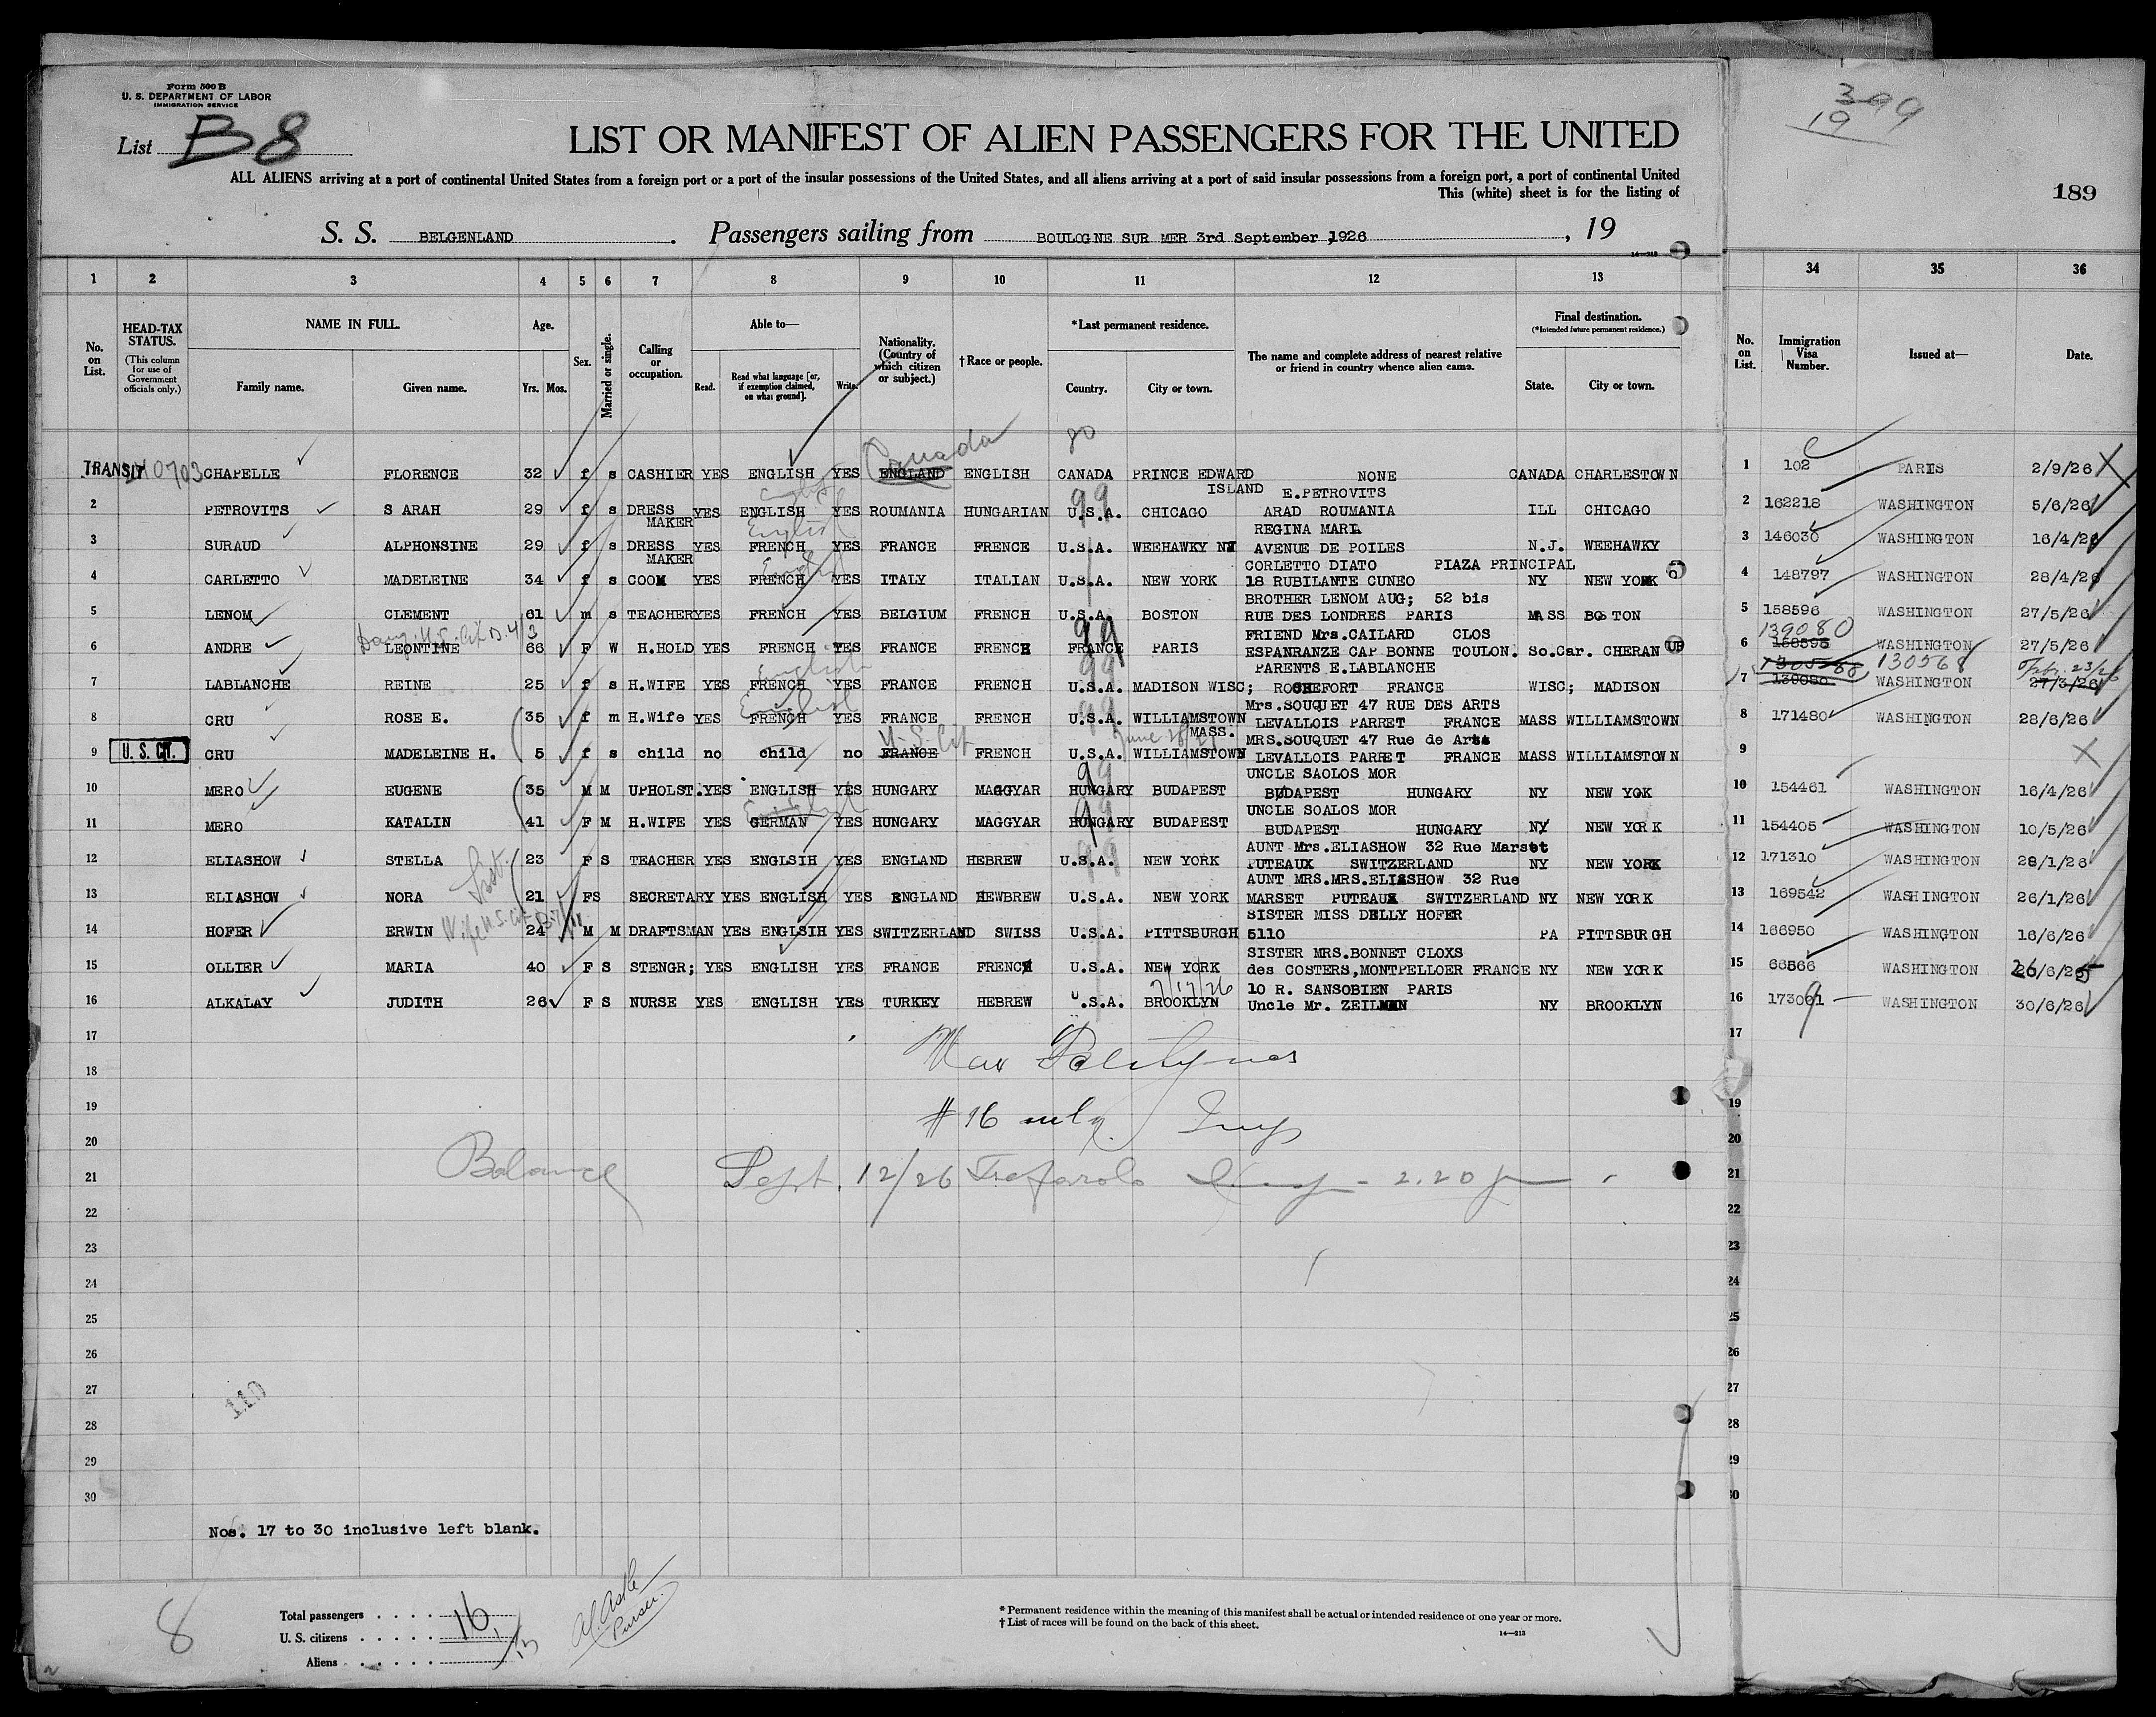 Form 500 B
U. S. DEPARTMENT OF LABOR
IMMIGRATION SERVICE
List B8
LIST OR MANIFEST OF ALIEN PASSENGERS FOR THE UNITED
ALL ALIENS arriving at a port of continental United States from a foreign port or a port of the insular possessions of the United States, and all aliens arriving at a port of said insular possessions from a foreign port, a port of continental United
This (white) sheet is for the listing of
S. S. BELGENLAND. Passengers sailing from BOULOGNE SUR MER 3rd September, 1926, 19
14—213
399
19
189
1 2 3 4 5 6 7 8 9 10 11 12 13 34 35 36
No. on List.
HEAD-TAX STATUS.
(This column for use of Government officials only.)
NAME IN FULL.
Family name. Given name.
Age.
Yrs. Mos.
Sex.
Married or single.
Calling or occupation.
Able to—
Read. Read what language [or, if exemption claimed, on what ground]. Write.
Nationality. (Country of which citizen or subject.)
†Race or people.
*Last permanent residence.
Country. City or town.
The name and complete address of nearest relative or friend in country whence alien came.
Final destination.
(*Intended future permanent residence.)
State. City or town.
No. on List.
Immigration Visa Number.
Issued at—
Date.
Canada 80
TRANSIT CHAPELLE FLORENCE 32 f s CASHIER YES ENGLISH YES ENGLAND ENGLISH CANADA PRINCE EDWARD ISLAND NONE CANADA CHARLESTOWN 1 102 PARIS 2/9/26
2 PETROVITS SARAH 29 f s DRESS MAKER YES ENGLISH YES ROUMANIA HUNGARIAN U.S.A. CHICAGO E.PETROVITS ARAD ROUMANIA ILL CHICAGO 2 162218 WASHINGTON 5/6/26
3 SURAUD ALPHONSINE 29 f s DRESS MAKER YES FRENCH English YES FRANCE FRENCE U.S.A. WEEHAWKY NJ REGINA MARI AVENUE DE POILES N.J. WEEHAWKY 3 146030 WASHINGTON 16/4/26
4 CARLETTO MADELEINE 34 f s COOK YES FRENCH English YES ITALY ITALIAN U.S.A. NEW YORK CORLETTO DIATO PIAZA PRINCIPAL 18 RUBILANTE CUNEO NY NEW YORK 4 148797 WASHINGTON 28/4/26
5 LENOM CLEMENT 61 m s TEACHER YES FRENCH YES BELGIUM FRENCH U.S.A. BOSTON BROTHER LENOM AUG; 52 bis RUE DES LONDRES PARIS MASS BOSTON 5 158596 WASHINGTON 27/5/26
6 ANDRE LEONTINE 66 F W H.HOLD YES FRENCH YES FRANCE FRENCH FRANCE PARIS FRIEND Mrs.CAILARD CLOS ESPANRANZE CAP BONNE TOULON. So.Car. CHERAN 6 139080 158596 WASHINGTON 27/5/26
7 LABLANCHE REINE 25 f s H.WIFE YES FRENCH English YES FRANCE FRENCH U.S.A. MADISON WISC; PARENTS E.LABLANCHE ROCHEFORT FRANCE WISC; MADISON 7 139080 130568 WASHINGTON 27/3/26 Feb. 23/26
8 CRU ROSE E. 35 f m H.Wife YES FRENCH English YES FRANCE FRENCH U.S.A. WILLIAMSTOWN MASS. Mrs.SOUQUET 47 RUE DES ARTS LEVALLOIS PARRET FRANCE MASS WILLIAMSTOWN 8 171480 WASHINGTON 28/6/26
9 U.S. CIT. CRU MADELEINE H. 5 f s child no child no FRANCE U.S. Cit FRENCH U.S.A. WILLIAMSTOWN MRS.SOUQUET 47 Rue de Arts LEVALLOIS PARRET FRANCE MASS WILLIAMSTOWN 9
10 MERO EUGENE 35 M M UPHOLST. YES ENGLISH YES HUNGARY MAGGYAR HUNGARY BUDAPEST UNCLE SAOLOS MOR BUDAPEST HUNGARY NY NEW YOK 10 154461 WASHINGTON 16/4/26
11 MERO KATALIN 41 F M H.WIFE YES GERMAN English YES HUNGARY MAGGYAR HUNGARY BUDAPEST UNCLE SOALOS MOR BUDAPEST HUNGARY NY NEW YORK 11 154405 WASHINGTON 10/5/26
12 ELIASHOW STELLA 23 F S TEACHER YES ENGLSIH YES ENGLAND HEBREW U.S.A. NEW YORK AUNT Mrs.ELIASHOW 32 Rue Marset PUTEAUX SWITZERLAND NY NEW YORK 12 171310 WASHINGTON 28/1/26
13 ELIASHOW NORA 21 F S SECRETARY YES ENGLISH YES ENGLAND HEWBREW U.S.A. NEW YORK AUNT MRS.MRS.ELIASHOW 32 Rue MARSET PUTEAUX SWITZERLAND NY NEW YORK 13 169542 WASHINGTON 26/1/26
14 HOFER ERWIN 24 M M DRAFTSMAN YES ENGLSIH YES SWITZERLAND SWISS U.S.A. PITTSBURGH SISTER MISS DELLY HOFER 5110 PA PITTSBURGH 14 166950 WASHINGTON 16/6/26
15 OLLIER MARIA 40 F S STENGR; YES ENGLISH YES FRANCE FRENCH U.S.A. NEW YORK SISTER MRS.BONNET CLOXS des COSTERS,MONTPELLOER FRANCE NY NEW YORK 15 66566 WASHINGTON 26/6/25
16 ALKALAY JUDITH 26 F S NURSE YES ENGLISH YES TURKEY HEBREW U.S.A. BROOKLYN 7/17/26 10 R. SANSOBIEN PARIS Uncle Mr. ZEILMAN NY BROOKLYN 16 173061 WASHINGTON 30/6/26
17 17
18
19 #16 only 19
20 20
21 Balance Sept. 12/26 2.20 pm 21
22 22
23 23
24 24
25 25
26 26
27 27
110
28 28
29 29
30 30
Nos. 17 to 30 inclusive left blank.
8
Total passengers 16
U. S. citizens 1
Aliens 15
Purser.
* Permanent residence within the meaning of this manifest shall be actual or intended residence of one year or more.
† List of races will be found on the back of this sheet.
14—213